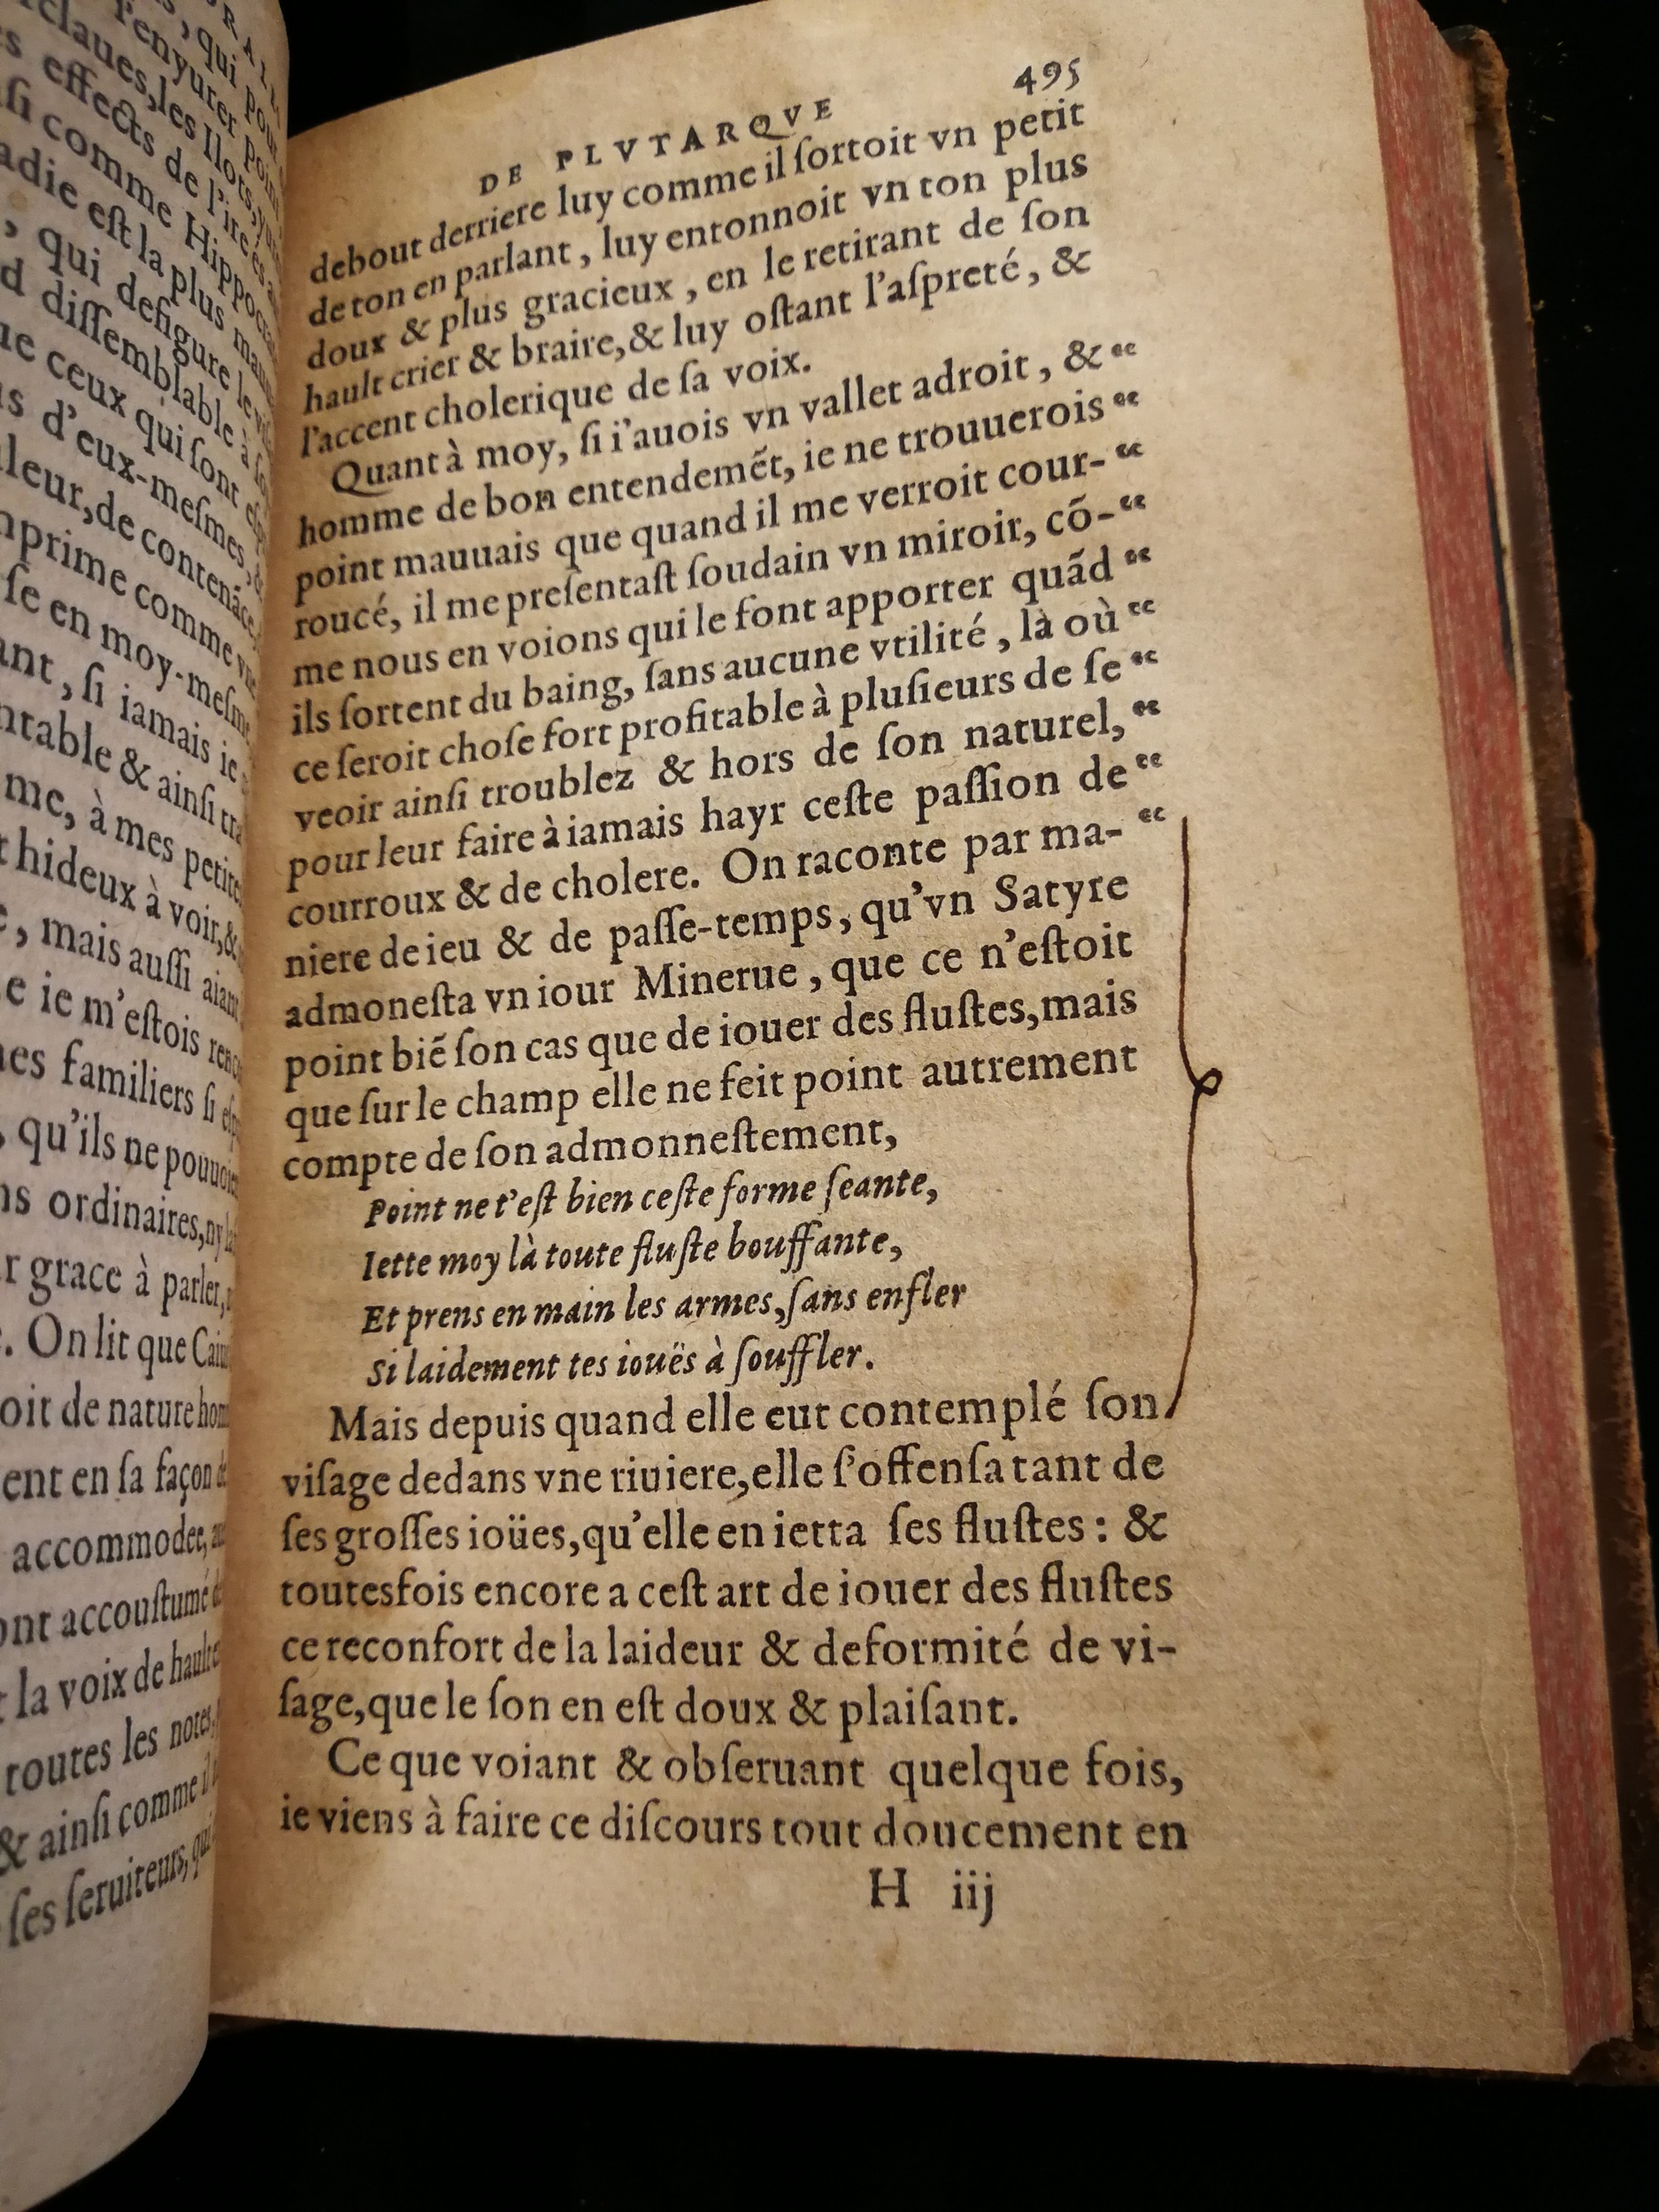 DE PLVTARQVE 495
debout derriere luy comme il ſortoit vn petit
de ton en parlant, luy entonnoit vn ton plus
doux & plus gracieux, en le retirant de ſon
hault crier & braire, & luy oſtant l'aſpreté, &
l'accent cholerique de ſa voix.
Quant à moy, ſi i'auois vn vallet adroit, & “
homme de bon entendemẽt, ie ne trouuerois “
point mauuais que quand il me verroit cour- “
roucé, il me preſentaſt ſoudain vn miroir, cõ- “
me nous en voions qui le font apporter quãd “
ils ſortent du baing, ſans aucune vtilité, là où “
ce ſeroit choſe fort profitable à pluſieurs de ſe “
veoir ainſi troublez & hors de ſon naturel, “
pour leur faire à iamais hayr ceſte paſſion de “
courroux & de cholere. On raconte par ma- “
niere de ieu & de paſſe-temps, qu'vn Satyre
admoneſta vn iour Minerue, que ce n'eſtoit
point biẽ ſon cas que de iouer des fluſtes, mais
que ſur le champ elle ne feit point autrement
compte de ſon admonneſtement,
Point ne t'eſt bien ceſte forme ſeante,
Iette moy là toute fluſte bouffante,
Et prens en main les armes, ſans enfler
Si laidement tes iouës à ſouffler.
Mais depuis quand elle eut contemplé ſon
viſage dedans vne riuiere, elle ſ'offenſa tant de
ſes groſſes ioües, qu'elle en ietta ſes fluſtes : &
toutesfois encore a ceſt art de iouer des fluſtes
ce reconfort de la laideur & deformité de vi-
ſage, que le ſon en eſt doux & plaiſant.
Ce que voiant & obſeruant quelque fois,
ie viens à faire ce diſcours tout doucement en
H iij
, qui pour
enyurer point
claues, les Ilots,
effects de l'ire
ſi comme
adie eſt la plus
, qui defigure le
d diſſemblable à
ue ceux qui ſont
d'eux-meſmes,
leur, de contenãce,
prime comme
ſe en moy-meſme
ant, ſi iamais ie
table & ainſi
me, à mes petits
hideux à voir, &
, mais auſſi aiant
e ie m'eſtois
es familiers ſi
, qu'ils ne
ns ordinaires, ny
r grace à parler,
. On lit que
oit de nature
ent en ſa façon
accommoder,
ont accouſtumé
la voix de
toutes les notes,
& ainſi comme il
ſes ſeruiteurs, qui